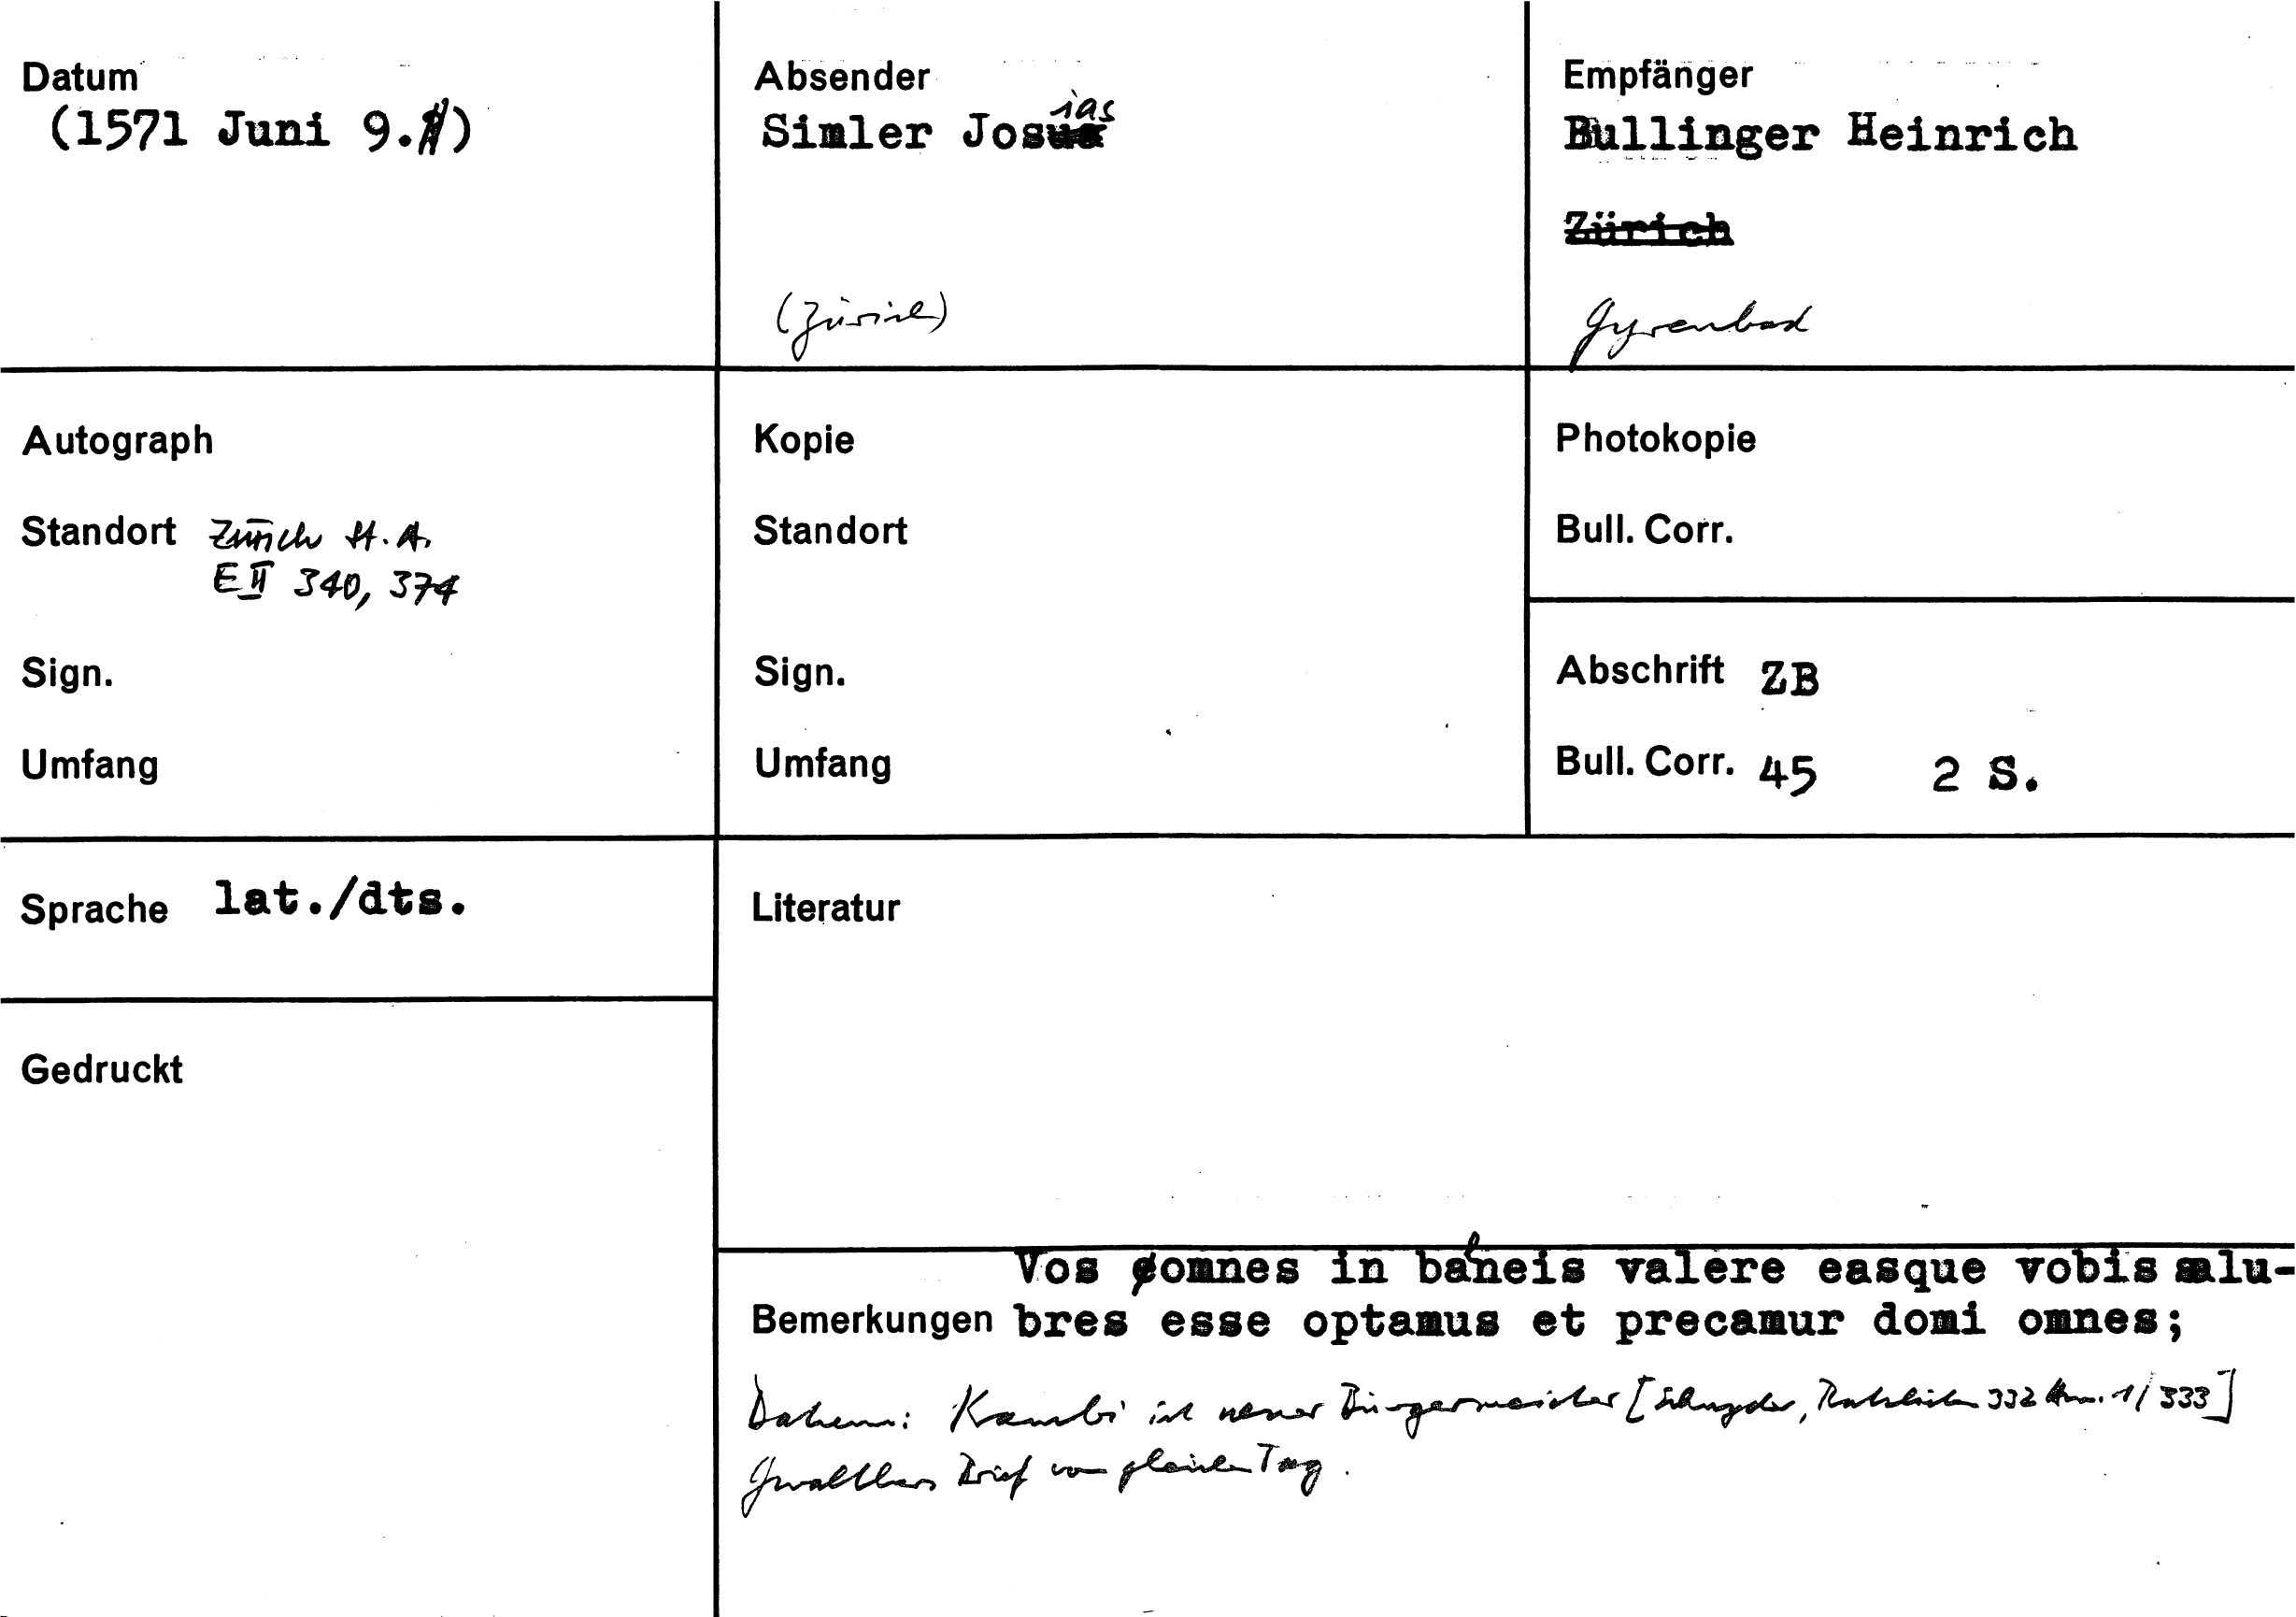 Datum
(1571 Juni 9.)
Absender
Simler Josias
(Zürich)
Empfänger
Bullinger Heinrich
Zürich
Gyrenbad
Autograph
Standort Zürich St. A.
E II 340, 374
Sign.
Umfang
Kopie
Standort
Sign.
Umfang
Photokopie
Bull. Corr.
Abschrift ZB
Bull. Corr. 45 2 S.
Sprache lat./dts.
Literatur
Gedruckt
Vos omnes in balneis valere easque vobis salu-
Bemerkungen bres esse optamus et precamur domi omnes;
Datum: Kambli ist neuer Bürgermeister [Schnyder, Ratslisten 332 Anm. 1/333]
Gwalthers Brief vom gleichen Tag.